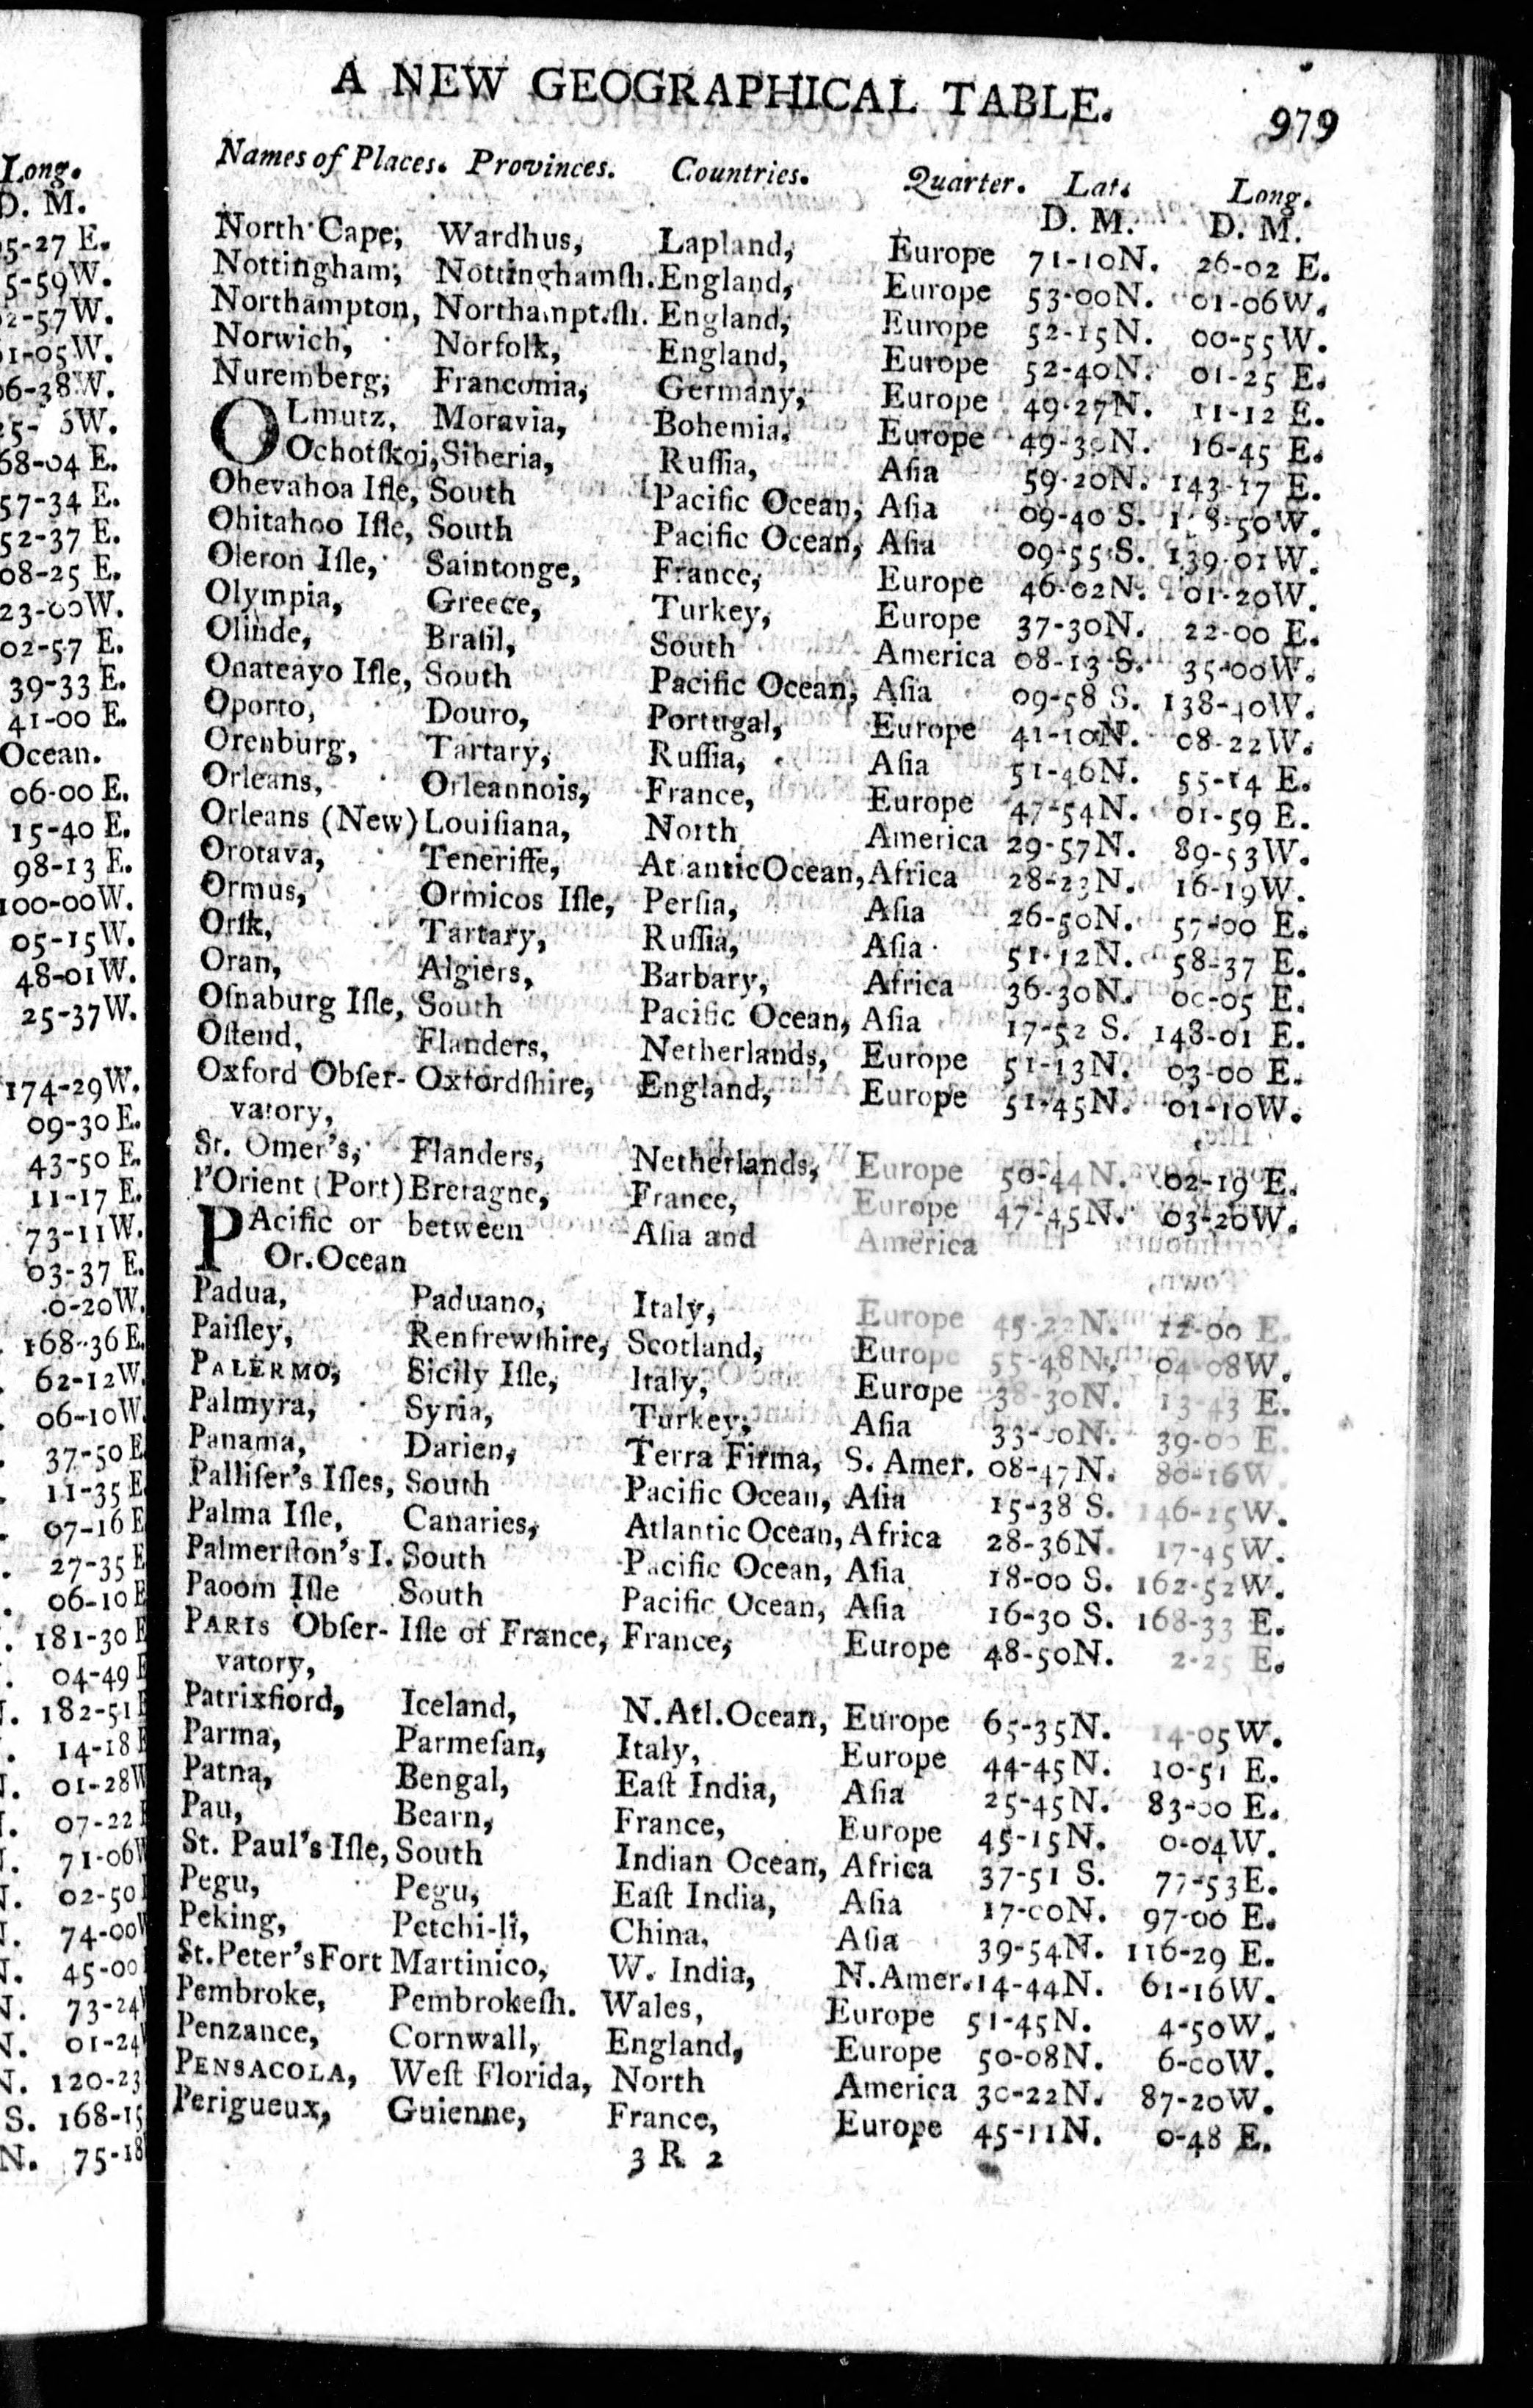 A NEW GEOGRAPHICAL TABLE. 979
Names of Places. Provinces. Countries. Quarter. Lat. Long.
D. M. D. M.
North Cape, Wardhus, Lapland, Europe 71-10N. 26-02 E.
Nottingham, Nottinghamſh. England, Europe 53-00N. 01-06W.
Northampton, Northampt.ſh. England, Europe 52-15N. 00-55W.
Norwich, Norfolk, England, Europe 52-40N. 01-25 E.
Nuremberg, Franconia, Germany, Europe 49-27N. 11-12 E.
OLmutz, Moravia, Bohemia, Europe 49-30N. 16-45 E.
Ochotſkoi, Siberia, Ruſſia, Aſia 59-20N. 143-17 E.
Ohevahoa Iſle, South Pacific Ocean, Aſia 09-40 S. 50W.
Ohitahoo Iſle, South Pacific Ocean, Aſia 09-55 S. 139-01W.
Oleron Iſle, Saintonge, France, Europe 46-02N. 01-20W.
Olympia, Greece, Turkey, Europe 37-30N. 22-00 E.
Olinde, Braſil, South America 08-13 S. 35-00W.
Onateayo Iſle, South Pacific Ocean, Aſia 09-58 S. 138-40W.
Oporto, Douro, Portugal, Europe 41-10N. 08-22W.
Orenburg, Tartary, Ruſſia, Aſia 51-46N. 55-14 E.
Orleans, Orleannois, France, Europe 47-54N. 01-59 E.
Orleans (New) Louiſiana, North America 29-57N. 89-53W.
Orotava, Teneriffe, Atlantic Ocean, Africa 28-23N. 16-19W.
Ormus, Ormicos Iſle, Perſia, Aſia 26-50N. 57-00 E.
Orſk, Tartary, Ruſſia, Aſia 51-12N. 58-37 E.
Oran, Algiers, Barbary, Africa 36-30N. 00-05 E.
Oſnaburg Iſle, South Pacific Ocean, Aſia 17-52 S. 148-01 E.
Oſtend, Flanders, Netherlands, Europe 51-13N. 03-00 E.
Oxford Obſer- Oxfordſhire, England, Europe 51-45N. 01-10W.
vatory,
St. Omer's, Flanders, Netherlands, Europe 50-44N. 02-19 E.
l'Orient (Port) Bretagne, France, Europe 47-45N. 03-20W.
PAcific or between Aſia and America
Or. Ocean
Padua, Paduano, Italy, Europe 45-22N. 12-00 E.
Paiſley, Renfrewſhire, Scotland, Europe 55-48N. 04-08W.
PALERMO, Sicily Iſle, Italy, Europe 38-30N. 13-43 E.
Palmyra, Syria, Turkey, Aſia 33-00N. 39-00 E.
Panama, Darien, Terra Firma, S. Amer. 08-47N. 80-16W.
Palliſer's Iſles, South Pacific Ocean, Aſia 15-38 S. 146-25W.
Palma Iſle, Canaries, Atlantic Ocean, Africa 28-36N. 17-45W.
Palmerſton's I. South Pacific Ocean, Aſia 18-00 S. 162-52W.
Paoom Iſle South Pacific Ocean, Aſia 16-30 S. 168-33 E.
PARIS Obſer- Iſle of France, France, Europe 48-50N. 2-25 E.
vatory,
Patrixfiord, Iceland, N. Atl. Ocean, Europe 65-35N. 14-05W.
Parma, Parmeſan, Italy, Europe 44-45N. 10-51 E.
Patna, Bengal, Eaſt India, Aſia 25-45N. 83-00 E.
Pau, Bearn, France, Europe 45-15N. 0-04W.
St. Paul's Iſle, South Indian Ocean, Africa 37-51 S. 77-53E.
Pegu, Pegu, Eaſt India, Aſia 17-00N. 97-00 E.
Peking, Petchi-li, China, Aſia 39-54N. 116-29 E.
St. Peter's Fort Martinico, W. India, N. Amer. 14-44N. 61-16W.
Pembroke, Pembrokeſh. Wales, Europe 51-45N. 4-50W.
Penzance, Cornwall, England, Europe 50-08N. 6-00W.
PENSACOLA, Weſt Florida, North America 30-22N. 87-20W.
Perigueux, Guienne, France, Europe 45-11N. 0-48 E.
3 R 2
Long.
D. M.
5-27 E.
5-59W.
2-57W.
1-05W.
6-38W.
68-04 E.
57-34 E.
52-37 E.
08-25 E.
23-00W.
02-57 E.
39-33 E.
41-00 E.
Ocean.
06-00 E.
15-40 E.
98-13 E.
100-00W.
05-15W.
48-01W.
25-37W.
174-29W.
09-30 E.
43-50 E.
11-17 E.
73-11W.
03-37 E.
0-20W.
168-36 E.
62-12W.
06-10W.
37-50 E
11-35 E
07-16 E
27-35 E
06-10 E
181-30 E
04-49 E
182-51 E
14-18 E
01-28W
07-22
71-06W
02-50
74-00W
45-00
73-24
01-24
120-23
S. 168-15
N. 75-18